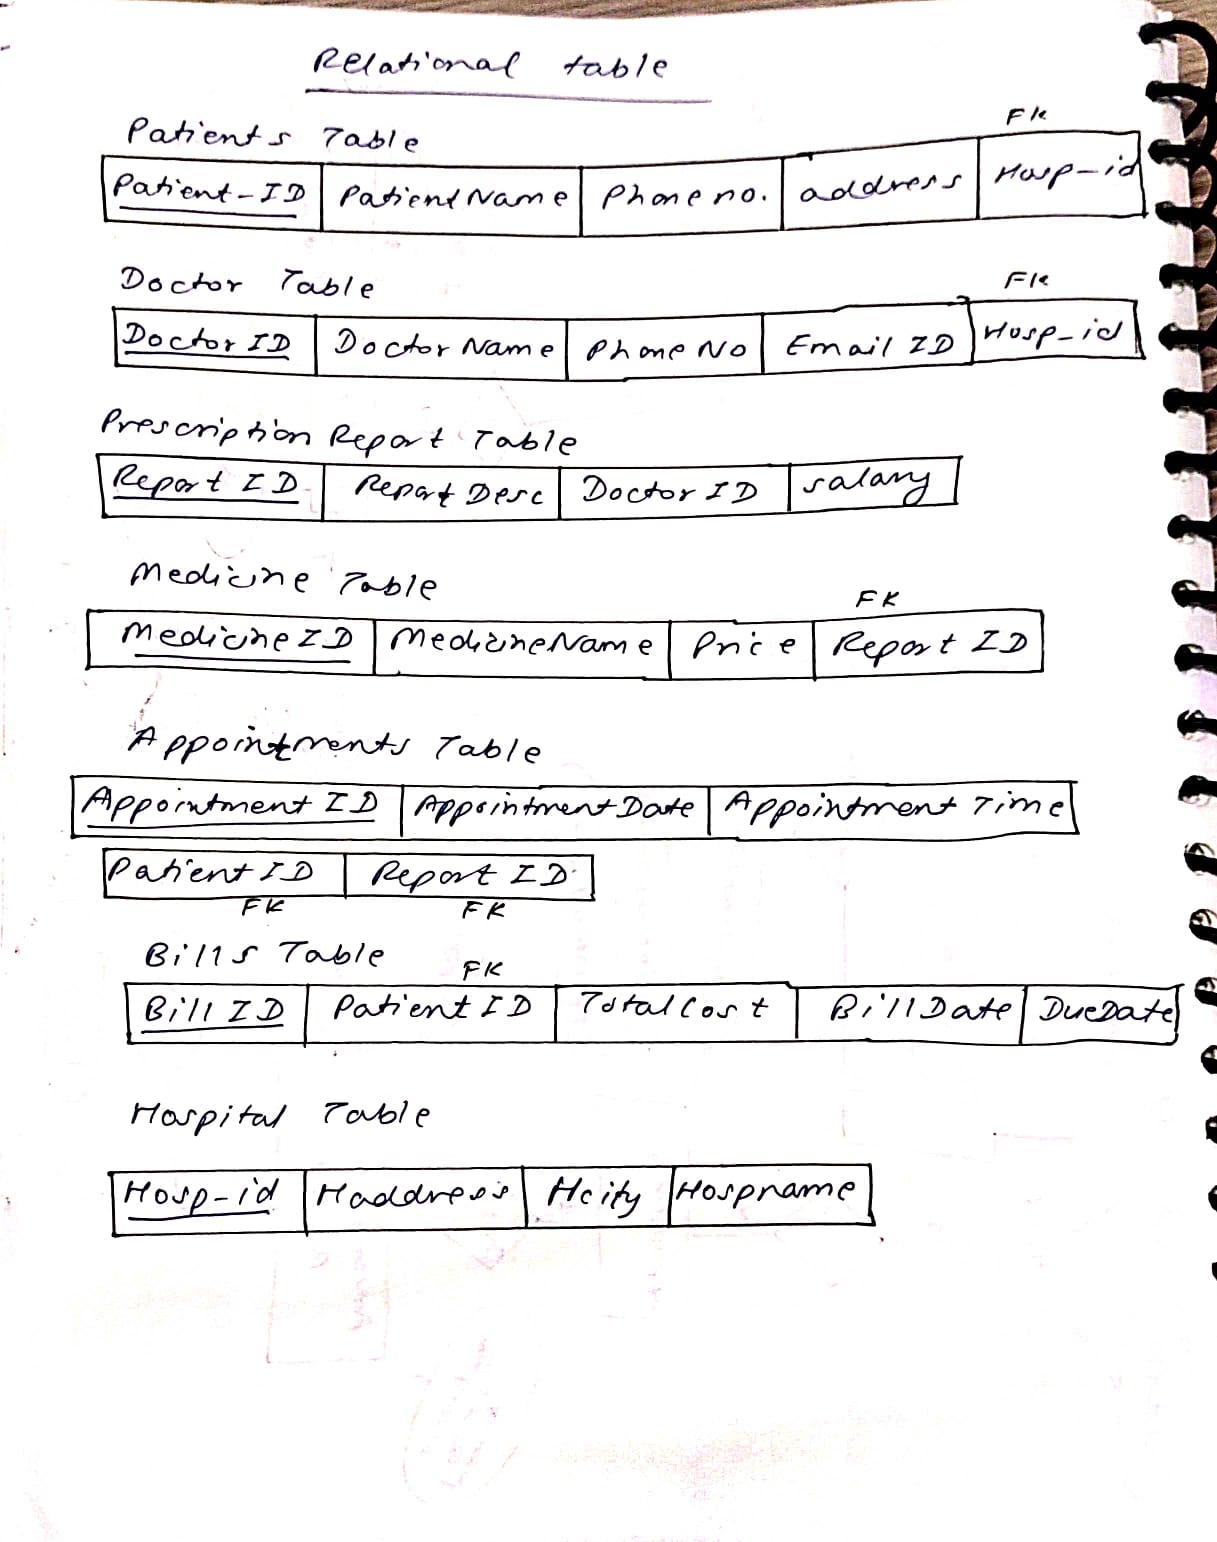 Relational table
Patients Table
FK
Patient-ID PatientName Phone no. address Hosp-id
Doctor Table
FK
Doctor ID Doctor Name Phone No Email ID Hosp-id
Prescription Report Table
Report ID Report Desc Doctor ID salary
Medicine Table
FK
Medicine ID MedicineName Price Report ID
Appointments Table
Appointment ID Appointment Date Appointment Time
Patient ID Report ID
FK FK
Bills Table
FK
Bill ID Patient ID Total Cost Bill Date DueDate
Hospital Table
Hosp-id Haddress Hcity Hospname